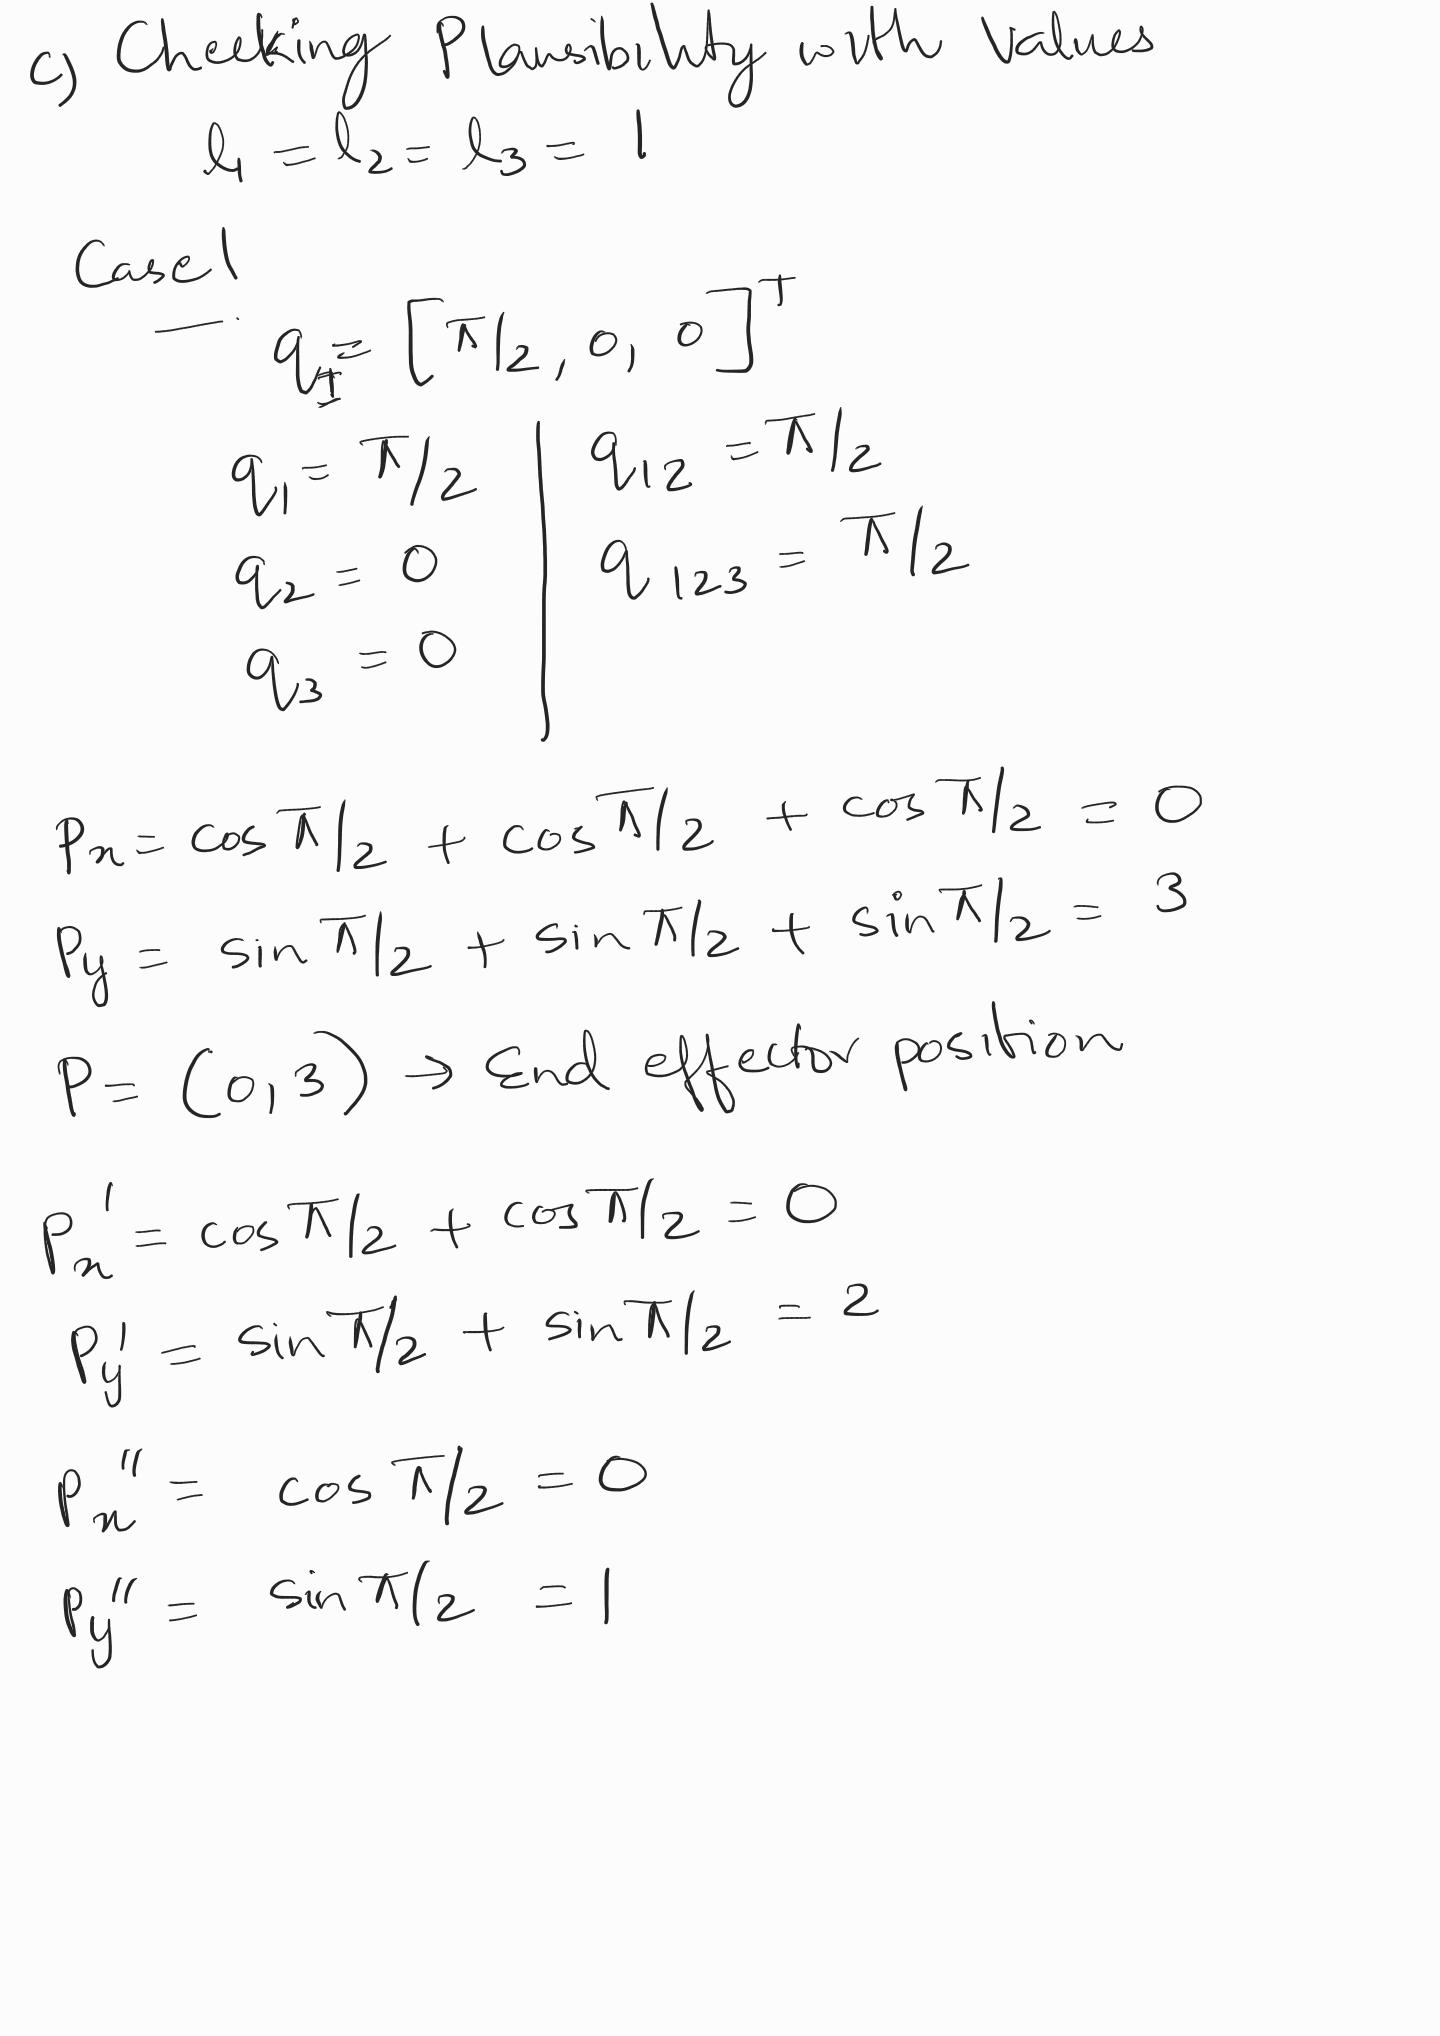 c) Checking Plausibility with values
l₁ = l₂ = l₃ = 1
Case 1
q_I = [π/2, 0, 0]ᵀ
q₁ = π/2 | q₁₂ = π/2
q₂ = 0 | q₁₂₃ = π/2
q₃ = 0
Pₓ = cos π/2 + cos π/2 + cos π/2 = 0
Py = sin π/2 + sin π/2 + sin π/2 = 3
P = (0, 3) → End effector position
Pₓ' = cos π/2 + cos π/2 = 0
Py' = sin π/2 + sin π/2 = 2
Pₓ'' = cos π/2 = 0
Py'' = sin π/2 = 1